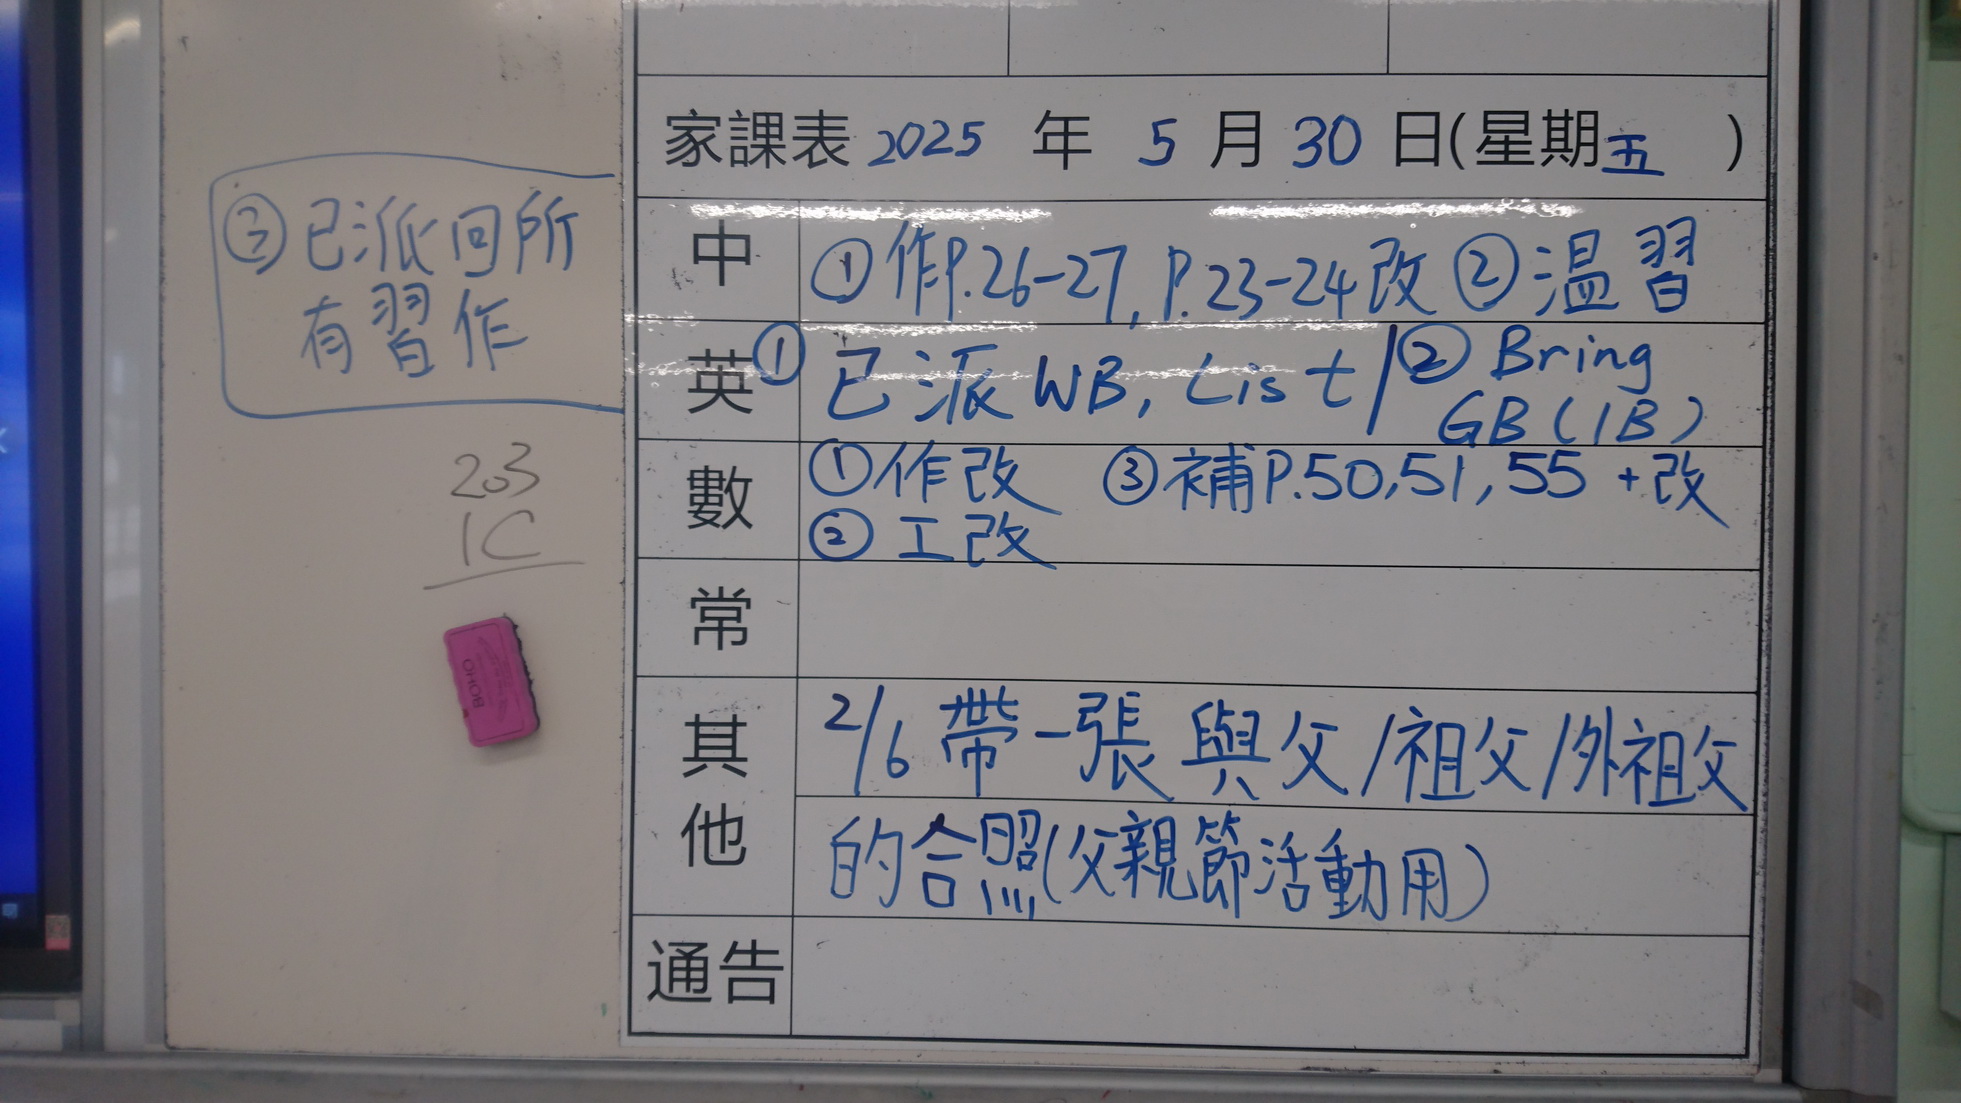 家課表 2025 年 5 月 30 日(星期五 )
中 ①作P.26-27, P.23-24改 ②温習
③已派回所
有習作
英 ① 已派WB, List / ② Bring
GB(1B)
數 ①作改 ③補P.50,51,55 +改
② 工改
常
其他 2/6 帶一張與父/祖父/外祖父
的合照(父親節活動用)
通告
203
1C
BOHO